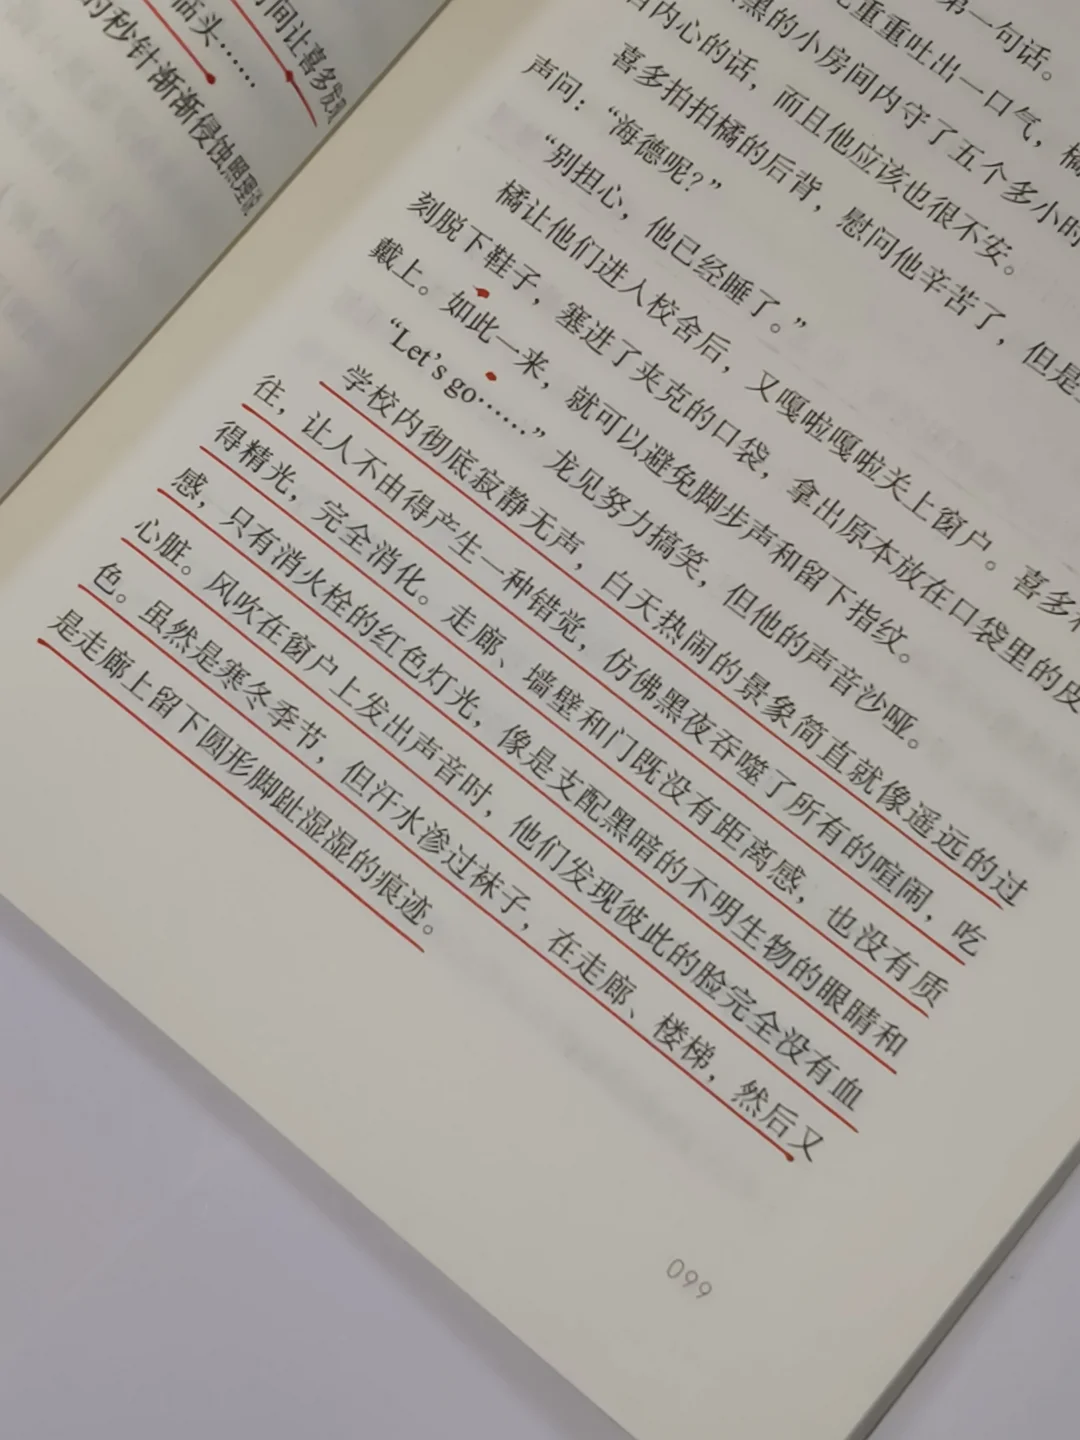 间让喜多发现
舐头……
的秒针渐渐侵蚀照理说
第一句话。
重重吐出一口气，橘
黑的小房间内守了五个多小时
内心的话，而且他应该也很不安。
喜多拍拍橘的后背，慰问他辛苦了，但是
声问：“海德呢？”
“别担心，他已经睡了。”
橘让他们进入校舍后，又嘎啦嘎啦关上窗户。喜多和
刻脱下鞋子，塞进了夹克的口袋，拿出原本放在口袋里的皮
戴上。如此一来，就可以避免脚步声和留下指纹。
“Let's go……”龙见努力搞笑，但他的声音沙哑。
学校内彻底寂静无声，白天热闹的景象简直就像遥远的过
往，让人不由得产生一种错觉，仿佛黑夜吞噬了所有的喧闹，吃
得精光，完全消化。走廊、墙壁和门既没有距离感，也没有质
感，只有消火栓的红色灯光，像是支配黑暗的不明生物的眼睛和
心脏。风吹在窗户上发出声音时，他们发现彼此的脸完全没有血
色。虽然是寒冬季节，但汗水渗过袜子，在走廊、楼梯，然后又
是走廊上留下圆形脚趾湿湿的痕迹。
099